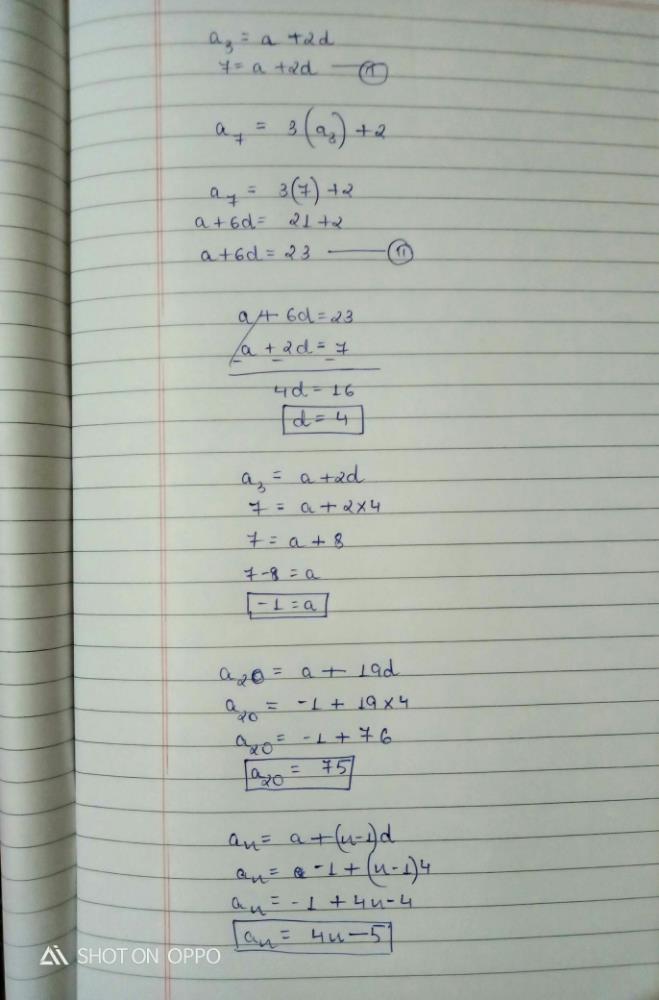 a₃ = a + 2d
7 = a + 2d — (I)
a₇ = 3(a₃) + 2
a₇ = 3(7) + 2
a + 6d = 21 + 2
a + 6d = 23 — (II)
a + 6d = 23
a + 2d = 7
− − −
4d = 16
d = 4
a₃ = a + 2d
7 = a + 2×4
7 = a + 8
7 - 8 = a
-1 = a
a₂₀ = a + 19d
a₂₀ = -1 + 19×4
a₂₀ = -1 + 76
a₂₀ = 75
aₙ = a + (n-1)d
aₙ = -1 + (n-1)4
aₙ = -1 + 4n - 4
aₙ = 4n - 5
SHOT ON OPPO